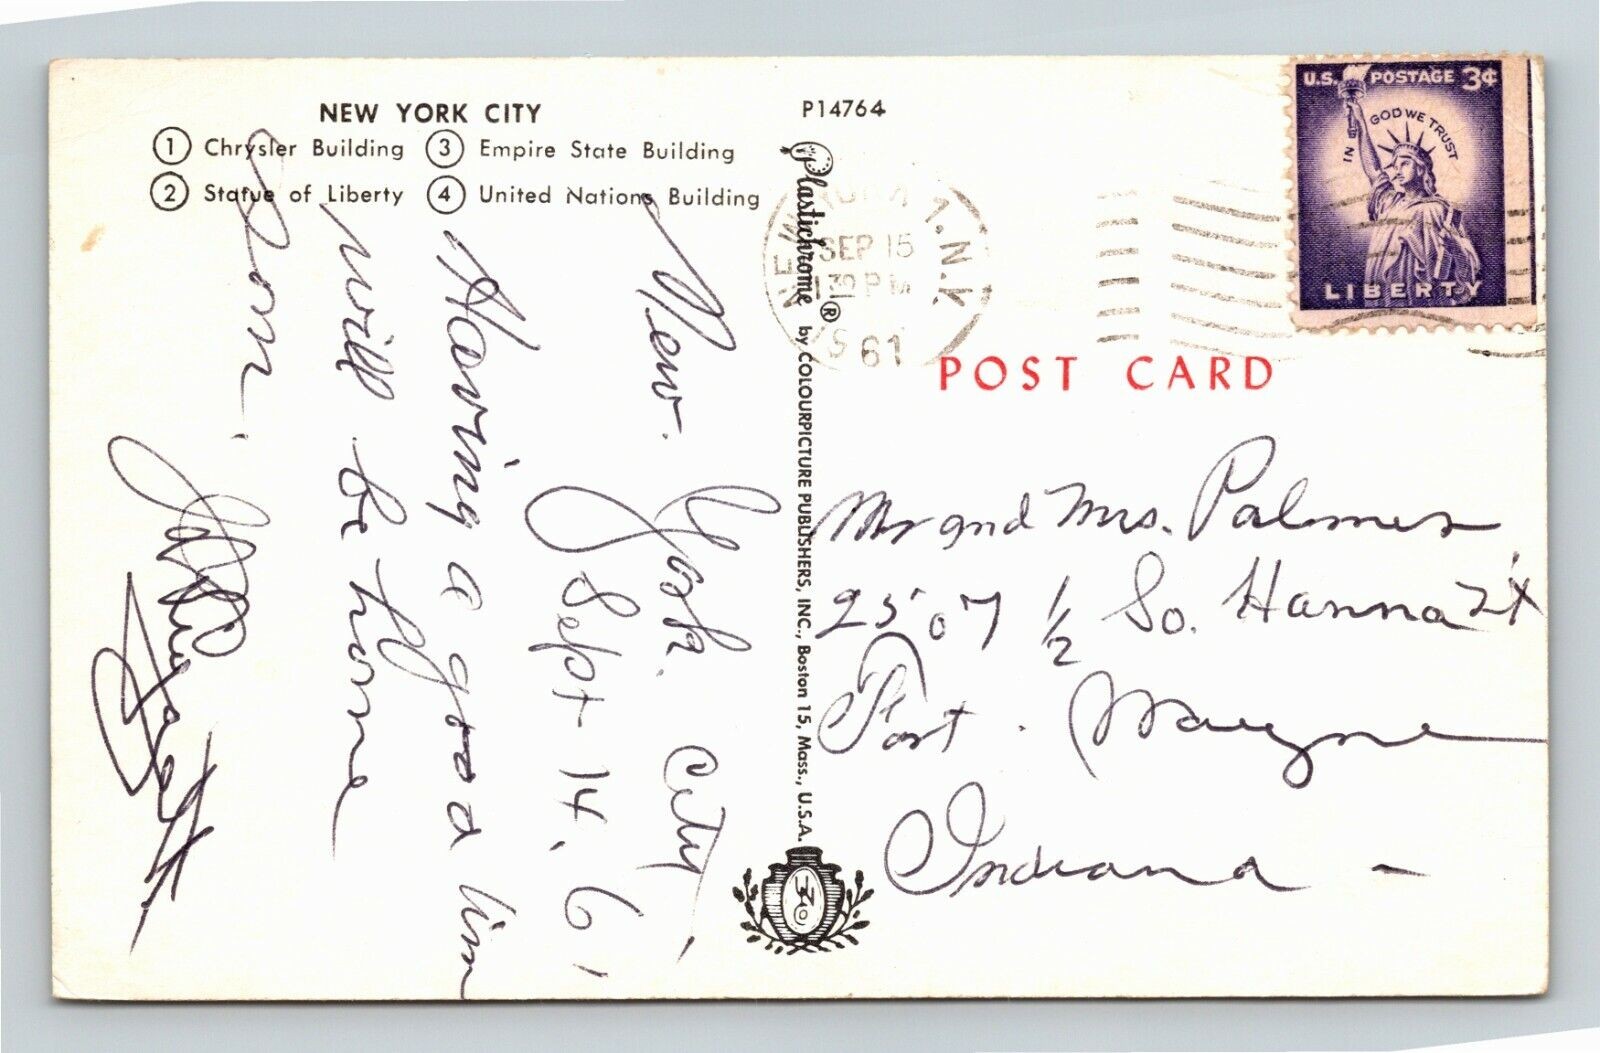 NEW YORK CITY
① Chrysler Building ③ Empire State Building
② Statue of Liberty ④ United Nations Building
P14764
Plastichrome ® by COLOURPICTURE PUBLISHERS, INC., Boston 15, Mass., U.S.A.
SEP 15
PM
61
U.S. POSTAGE 3¢
IN GOD WE TRUST
LIBERTY
POST CARD
New York City
Sept-14, 61
Having a good tim
will be home
soon.
Mr and Mrs. Palmer
2507 1/2 So. Hanna St
Fort. Wayne
Indiana -